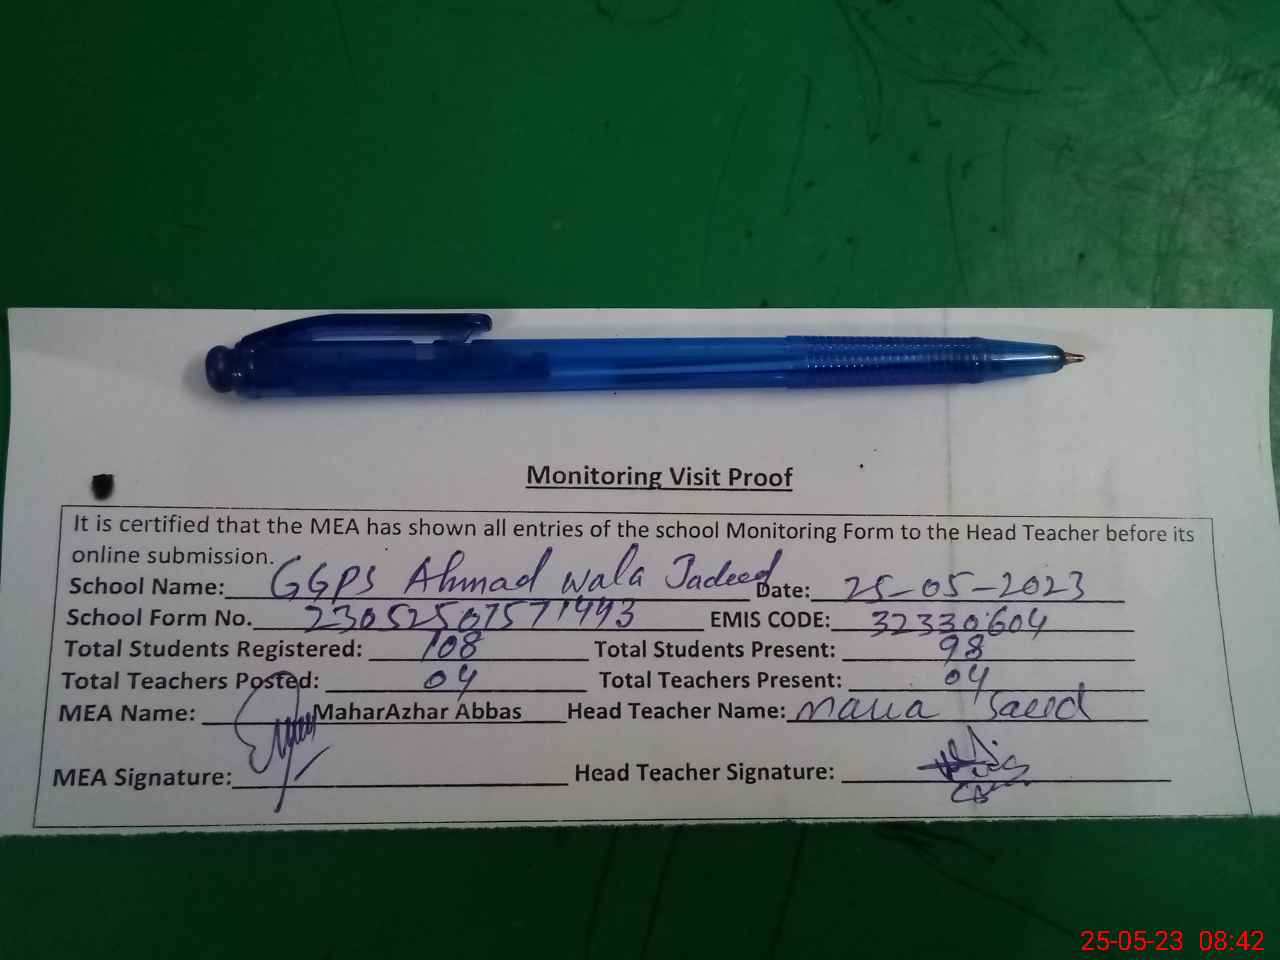 Monitoring Visit Proof
It is certified that the MEA has shown all entries of the school Monitoring Form to the Head Teacher before its
online submission.
School Name: GGPS Ahmad wala Jadeed Date: 25-05-2023
School Form No. EMIS CODE: 32330604
Total Students Registered: 108 Total Students Present: 98
Total Teachers Posted: 04 Total Teachers Present: 04
MEA Name: MaharAzhar Abbas Head Teacher Name: Maria Saeed
MEA Signature: Head Teacher Signature:
25-05-23 08:42